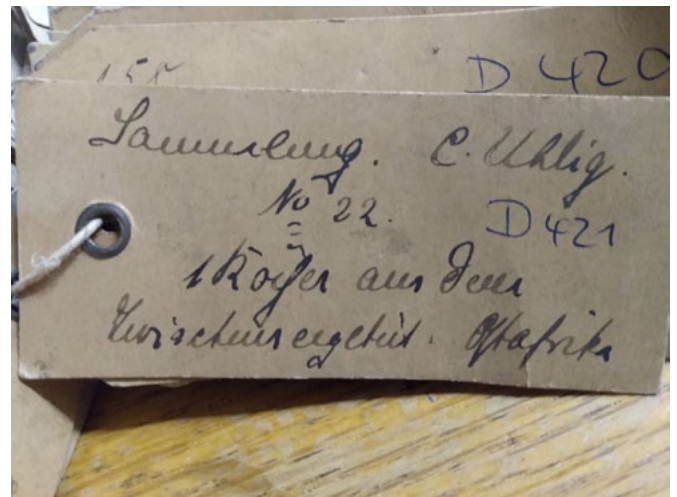 158
D 420
Sammlung. C. Uhlig.
No 22. D 421
1 Köcher aus dem
Zwischenseegebiet. Ostafrika